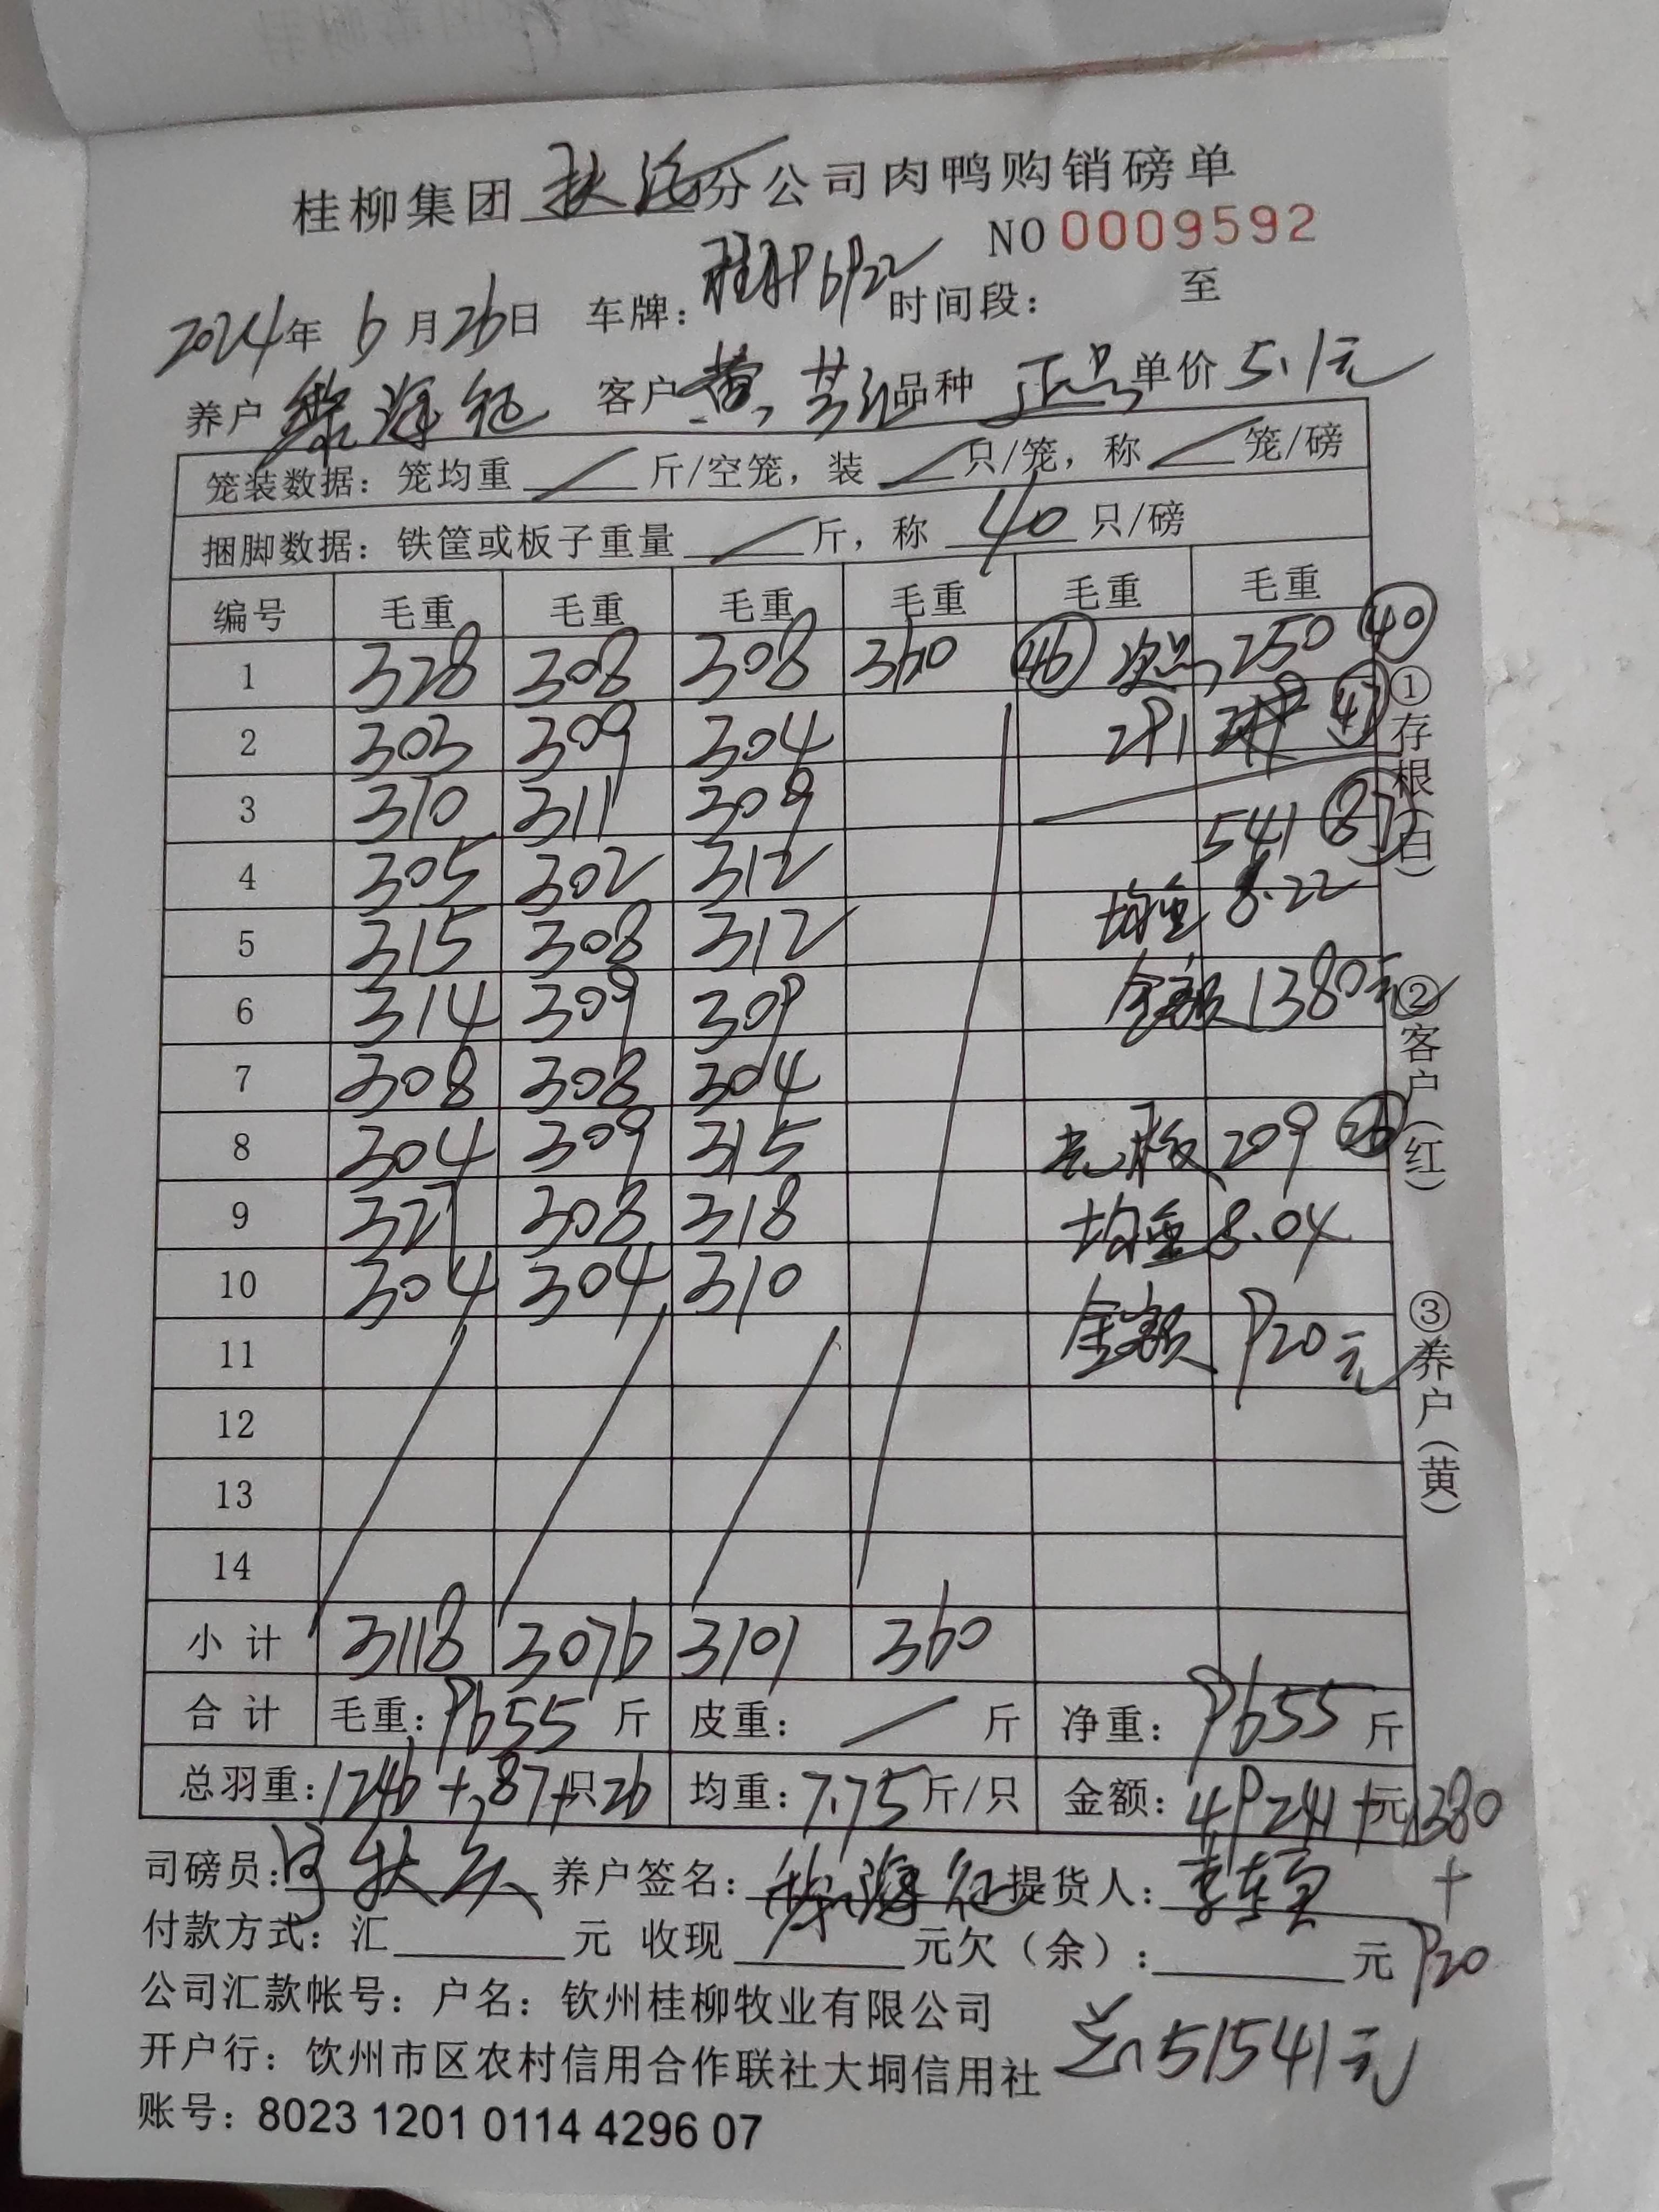 桂柳集团 扶绥 分公司肉鸭购销磅单
NO 0009592
2024年 6月26日 车牌: 时间段: 至
养户 客户 黄 品种 正品 单价 5.1元
笼装数据: 笼均重 / 斤/空笼, 装 / 只/笼, 称 / 笼/磅
捆脚数据: 铁筐或板子重量 / 斤, 称 40 只/磅
编号 毛重 毛重 毛重 毛重 毛重 毛重
1 328 308 308 360 46 次品 250 40
2 303 309 304 291 47
3 310 311 309
4 305 302 312 541 87
5 315 308 312 均重 6.22
6 314 309 309 金额 1380元
7 308 308 304
8 304 309 315 光板 209 26
9 327 308 318 均重 8.04
10 304 304 310
11 金额 920元
12
13
14
小计 3118 3076 3101 360
合计 毛重: 9655 斤 皮重: / 斤 净重: 9655 斤
总羽重: 1246 + 87 + 只 26 均重: 7.75 斤/只 金额: 49241 + 元 1380
司磅员: 养户签名: 提货人: +
付款方式: 汇 元 收现 元欠(余): 元 920
公司汇款帐号: 户名: 钦州桂柳牧业有限公司
开户行: 饮州市区农村信用合作联社大垌信用社 总51541元
账号: 8023 1201 0114 4296 07
①存根(白)
②客户(红)
③养户(黄)